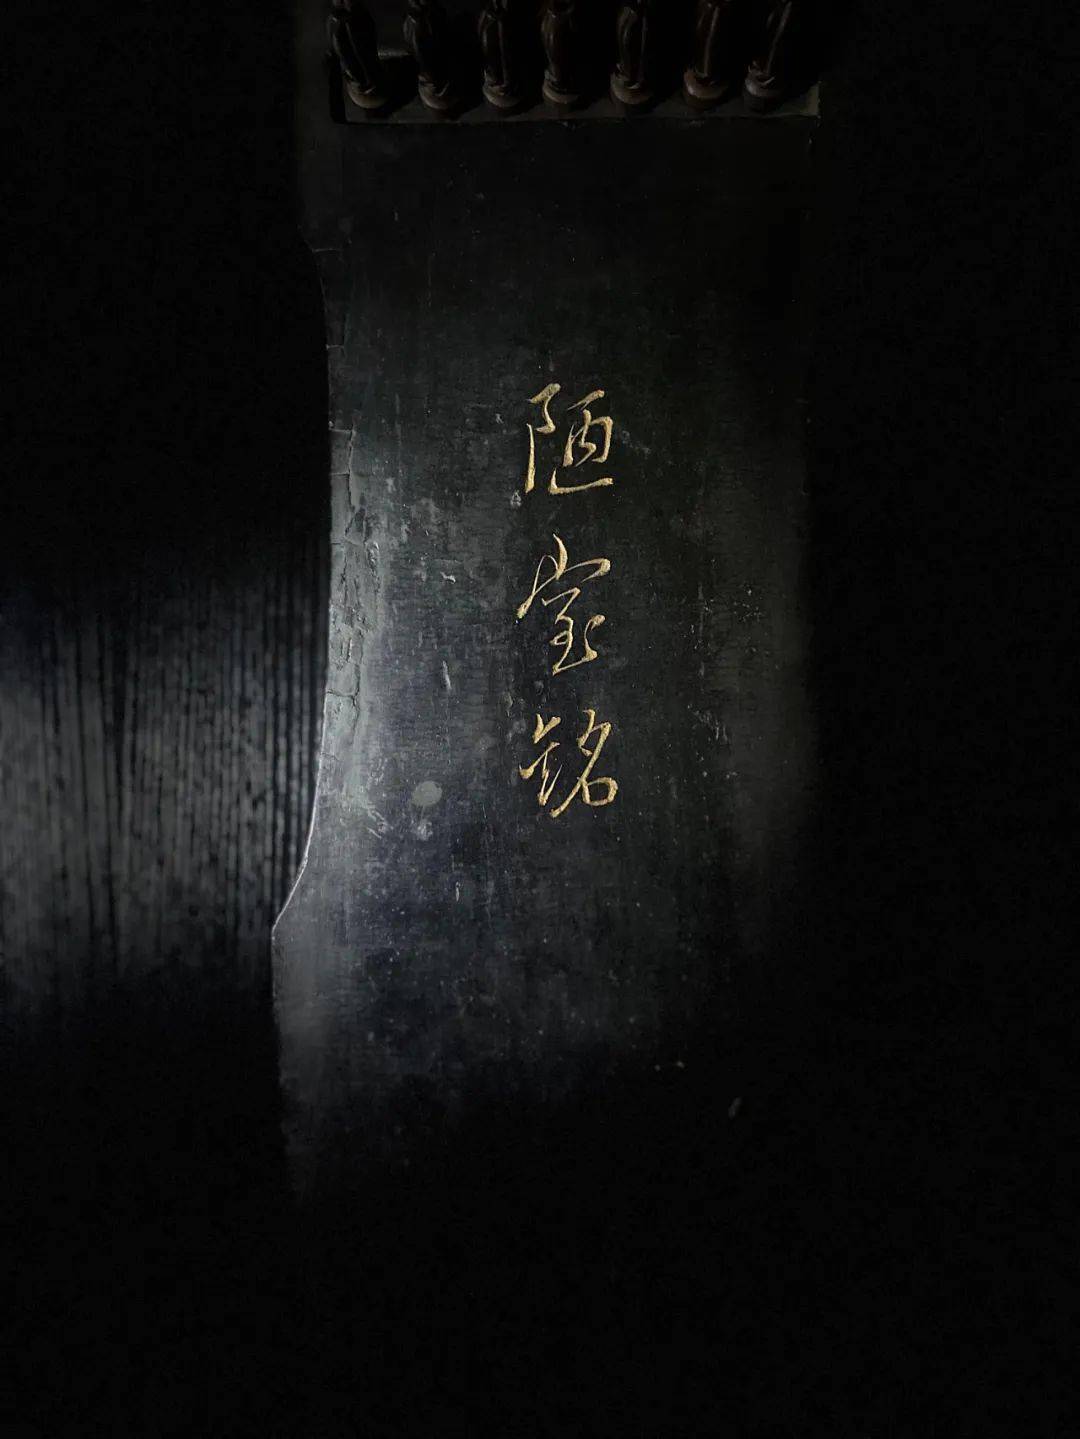 陋室銘